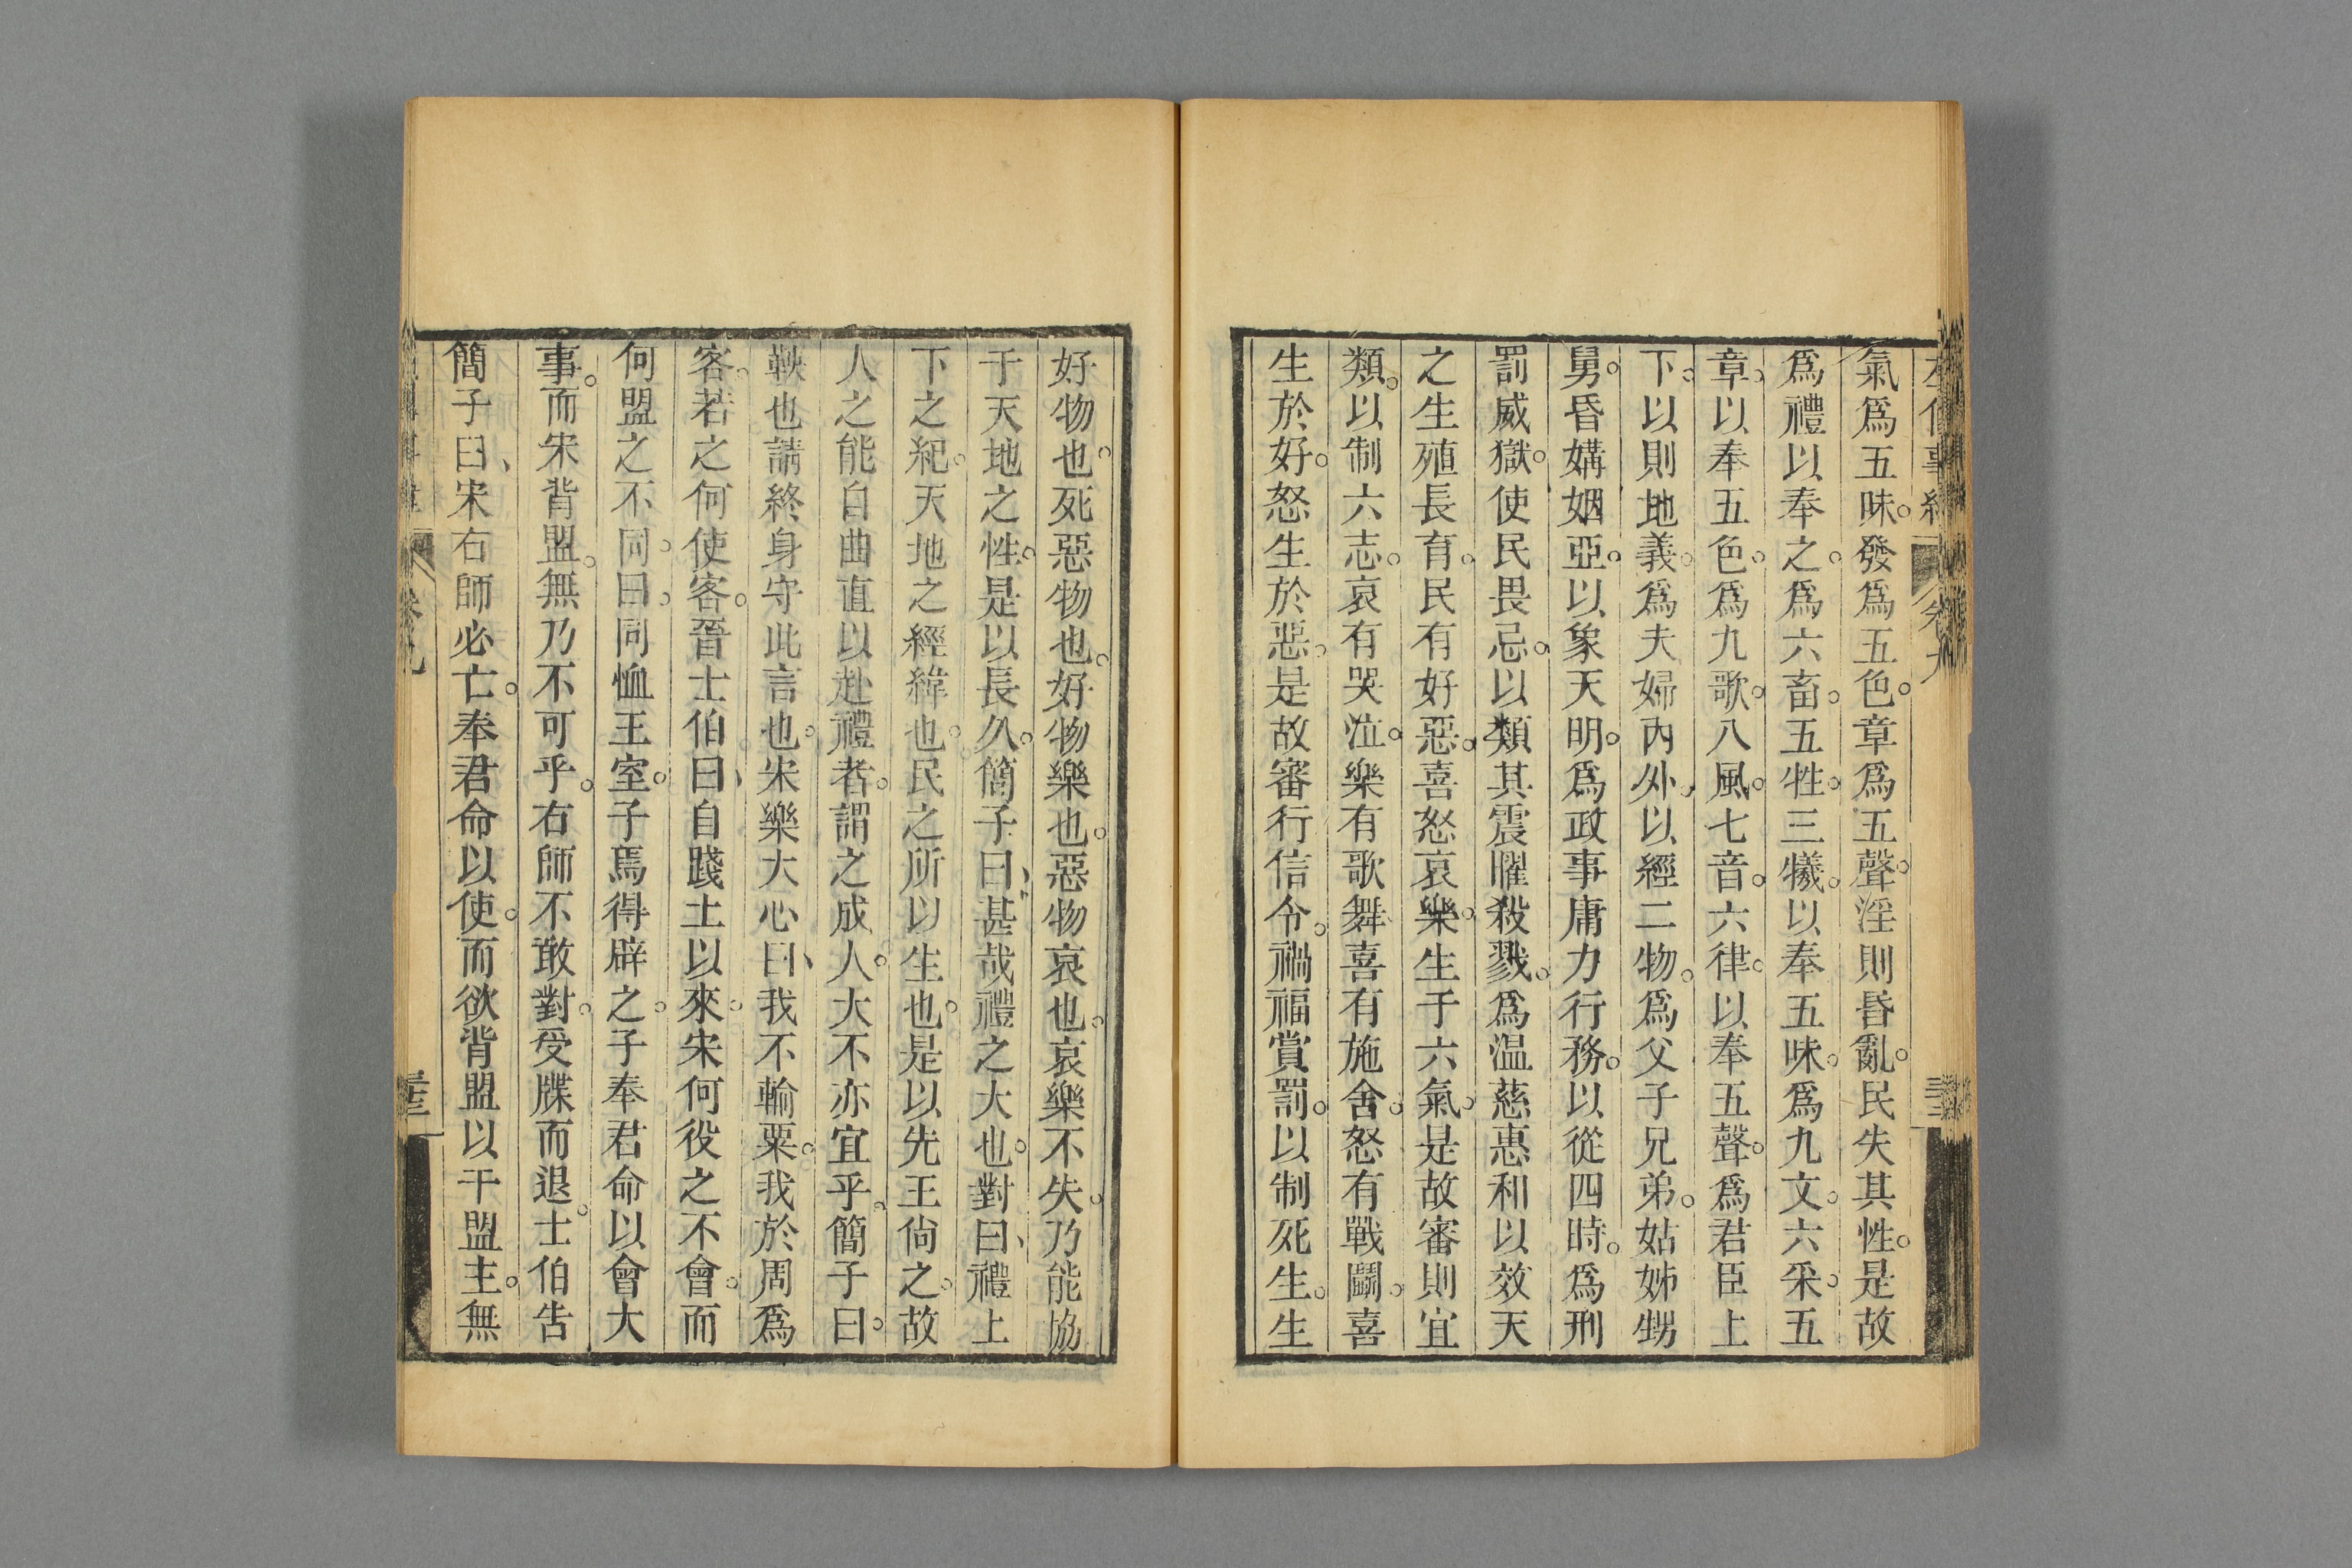 氣爲五味。發爲五色。章爲五聲。淫則昏亂。民失其性。是故
爲禮以奉之。爲六畜。五牲。三犧。以奉五味。爲九文。六采。五
章。以奉五色。爲九歌。八風。七音。六律。以奉五聲。爲君臣上
下。以則地義。爲夫婦內外、以經二物。爲父子兄弟。姑姊甥
舅。昏媾姻亞。以象天明。爲政事庸力行務。以從四時。爲刑
罰威獄。使民畏忌。以類其震曜殺戮。爲温慈惠和以效天
之生殖長育。民有好惡。喜怒哀樂。生于六氣。是故審則宜
類。以制六志。哀有哭泣。樂有歌舞喜有施舍。怒有戰鬬。喜
生於好。怒生於惡。是故審行信令。禍福賞罰。以制死生。生
好物也。死惡物也。好物樂也。惡物哀也。哀樂不失。乃能協
于天地之性。是以長久。簡子曰、甚哉禮之大也。對曰、禮上
下之紀。天地之經緯也。民之所以生也。是以先王尙之。故
人之能自曲直以赴禮者。謂之成人。大不亦宜乎。簡子曰。
鞅也請終身守此言也。宋樂大心曰、我不輸粟。我於周爲
客。若之何使客。晉士伯曰、自踐土以來。宋何役之不會。而
何盟之不同。曰。同恤王室。子焉得辟之。子奉君命以會大
事。而宋背盟。無乃不可乎。右師不敢對。受牒而退。士伯告
簡子曰、宋右師必亡。奉君命以使。而欲背盟以干盟主。無
卷九